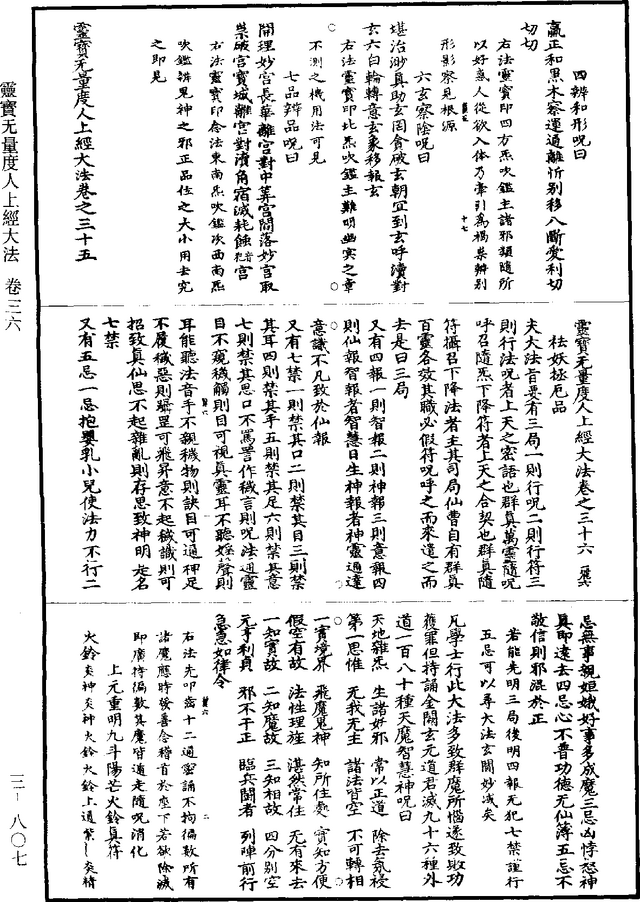 四辨和形呪曰
贏正和黑木察運通離忻别移八斷愛利切
切切
右法靈寶印四方炁吹鑑主諸邪類隨所
以好惡人從欲入体乃牽引爲禍祟辨别
形影察見根源
十七
六玄察陰呪曰
堪治渺真助玄罔貪破玄朝冝到玄呼瀆對
玄六白輪轉意玄象移報玄
右法靈寶印北炁吹鑑主難明幽冥之章
不測之機用法可見
七品辨品呪曰
開理妙宫長華離宫對中筭宫閻落妙宫取
祟破宫寶城離宫對濟角宿滅耗蝕宫
右法靈寶印念法東南炁吹鑑次西南炁
吹鑑辨鬼神之邪正品位之大小用去究
之即見
靈寶无量度人上經大法卷之三十五
靈寶无量度人上經大法卷之三十六
祛妖拯厄品
夫大法旨要有三局一則行呪二則行符三
則行法呪者上天之宻語也群真萬靈隨呪
呼召隨炁下降符者上天之合契也群真隨
符攝召下降法者主其司局仙曹自有群真
百靈各效其職必假符呪呼之而來遣之而
去是曰三局
又有四報一則智報二則神報三則意報四
則仙報智報者智慧日生神報者神靈通達
意識不凡致於仙報
又有七禁一則禁其口二則禁其目三則禁
其耳四則禁其手五則禁其足六則禁其意
七則禁其思口不罵詈作穢言則呪法通靈
目不窺穢觸則目可視真靈耳不聽婬聲則
耳能聽法音手不親穢物則訣目可通神足
不履穢惡則躡罡可飛昇意不起穢識則可
招致真仙思不起雜亂則存思致神明是名
七禁
又有五忌一忌抱嬰乳小兒使法力不行二
忌無事視姮娥好事多成魔三忌凶悖恐神
真即遠去四忌心不普功德无仙簿五忌不
敬信則邪混於正
若能先明三局後明四報无犯七禁謹行
五忌可以尋大法玄關妙漠矣
凡學士行此大法多致群魔所惱遂致敗功
獲罪但持誦金闕玄元道君滅九十六種外
道一百八十種天魔智慧神呪曰
天地雜炁　生諸奸邪　常以正道　除去氛祲
第一思惟　无我无主　諸法皆空　不可轉相
一實境界　飛魔鬼神　知所住處　實知方便
假空有故　法性理旌　湛然常住　无有來去
一知實故　二知魔故　三知相故　四分别空
元亨利貞　邪不干正　臨兵鬬者　列陣前行
急急如律令
右法先叩齒十二通宻誦不拘徧數所有
諸魔應時發善念稽首於座下若欲除滅
即廣持徧數其魔皆遁走隨呪消化
上元重明九斗陽芒火鈴真符
火鈴炎神炎神火鈴火鈴上通紫炎精
靈寶无量度人上經大法　卷三六
三一八〇七